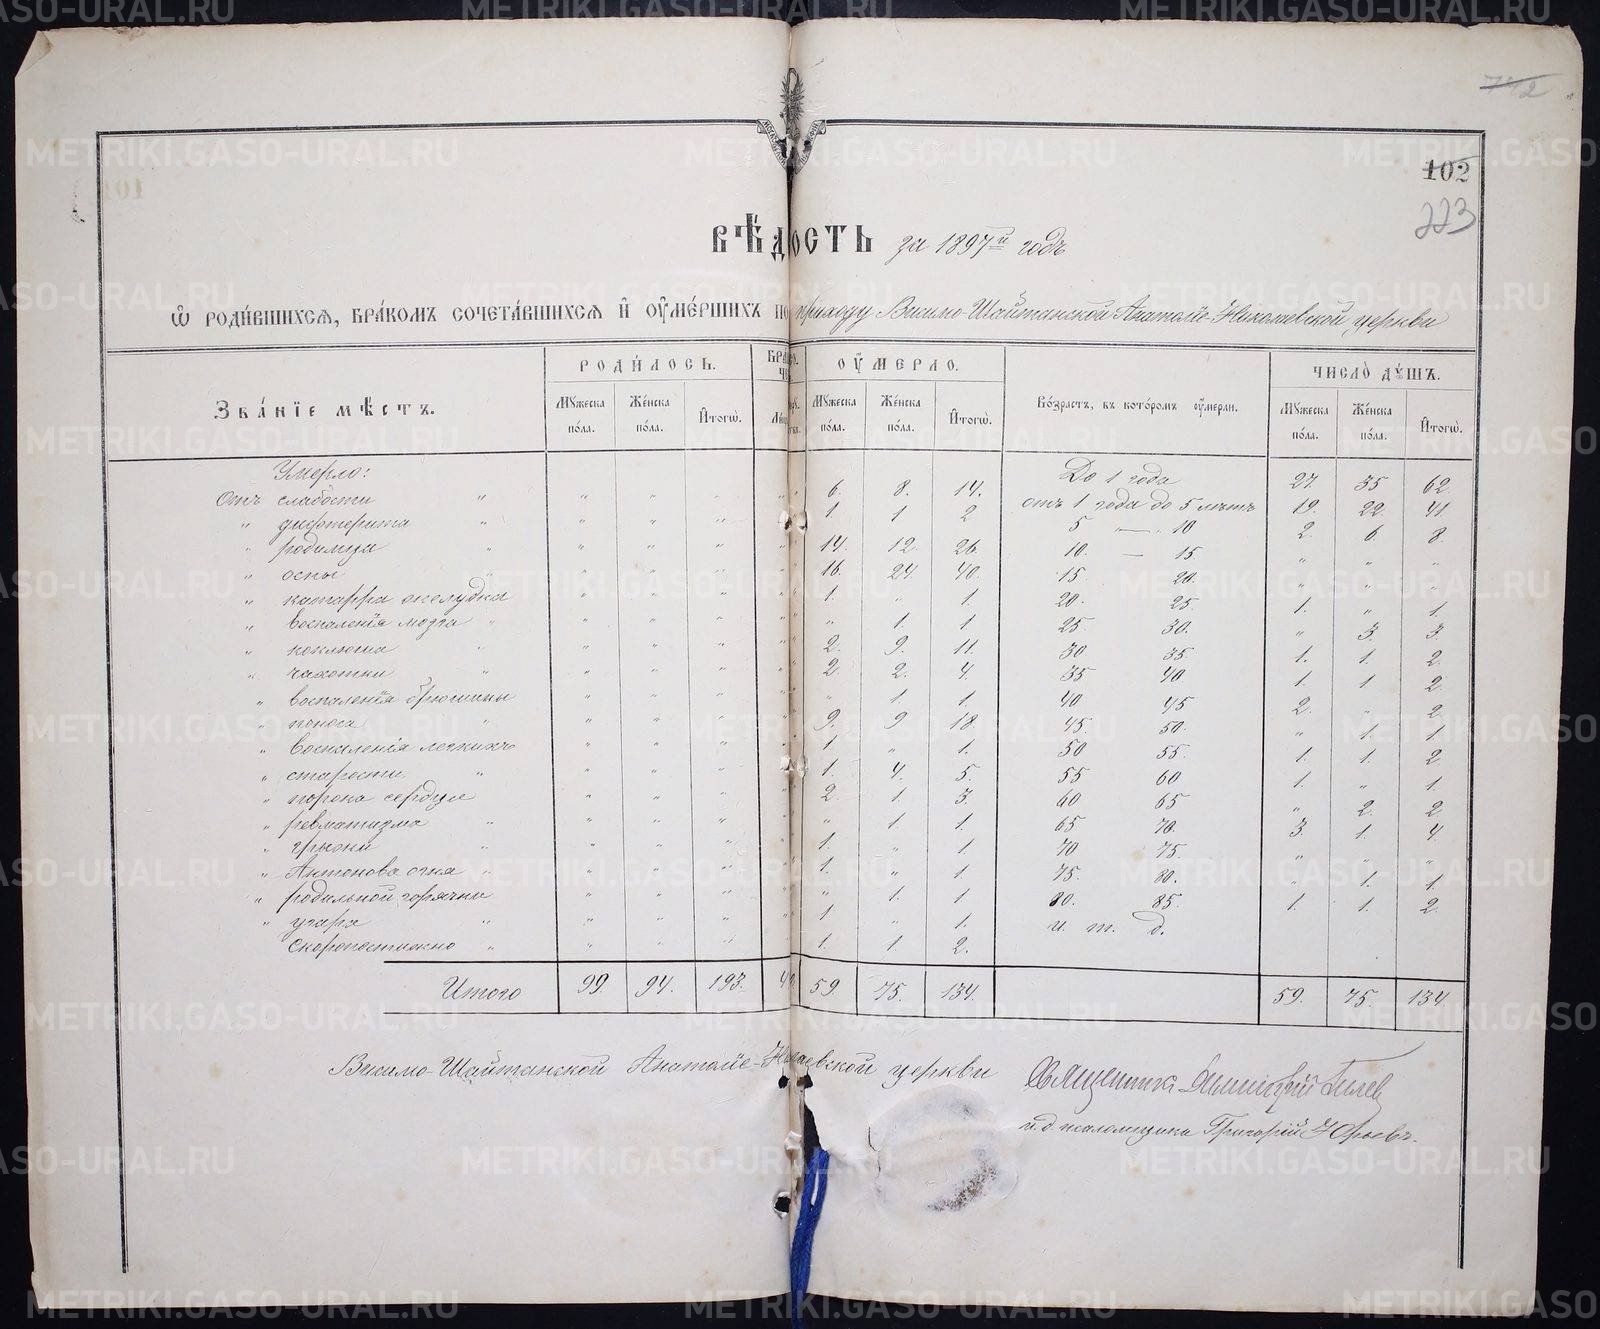 102
223
ВѢДОСТЬ за 1897й годъ
Ѡ РОДИ́ВШИХСЯ, БРА́КОМЪ СОЧЕТА́ВШИХСЯ И҆ ОУ҆МЕ́РШИХЪ ПО приходу Висимо-Шайтанской Анатоліе-Николаевской церкви
ЗВА́НІЕ МѢ́СТЪ. РОДИ́ЛОСЬ. ОУ҆́МЕРЛО. Во́зрастъ, въ кото́ромъ оу҆́мерли. ЧИСЛО̀ ДУ́ШЪ.
Му́жеска по́ла. Же́нска по́ла. И҆тогѡ̀. Му́жеска по́ла. Же́нска по́ла. И҆тогѡ̀. Му́жеска по́ла. Же́нска по́ла. И҆тогѡ̀.
Умерло: До 1 года 27. 35 62
Отъ слабости " " " " " 6. 8. 14. отъ 1 года до 5 лѣтъ 19. 22. 41
" дифтерита " " " " " 1 1 2 5 — 10 2 6. 8.
" родимца " " " " " 14. 12. 26. 10. — 15 " " "
" оспы " " " " " 16. 24. 40. 15 20. " " "
" катарра желудка " " " " 1. " 1. 20. 25. 1. " 1
" воспаленія мозга " " " " " " 1. 1 25 30. " 3. 3.
" коклюша " " " " " 2. 9. 11. 30 35 1. 1. 2.
" чахотки " " " " " 2. 2. 4. 35 40 1. 1 2
" воспаленія брюшины " " " " " 1 1. 40 45 2. " 2
" поноса " " " " " 9. 9. 18. 45. 50. " 1. 1
" воспаленія легкихъ " " " " 1. " 1. 50 55 1. 1. 2
" старости " " " " " 1. 4. 5. 55 60 1. " 1.
" порока сердца " " " " 2. 1. 3. 60 65 " 2. 2
" ревматизма " " " " " " 1. 1. 65 70. 3. 1. 4
" грыжи " " " " " 1. " 1 70 75. " " "
" Антонова огня " " " " " 1. " 1. 75. 80. " 1. 1.
" родильной горячки " " " " " 1 1 80. 85. 1. 1. 2.
" угара " " " " " 1 " 1. и. т. д.
Скоропостижно " " " " " 1. 1 2.
Итого 99. 94. 193. 59. 75. 134. 59. 75. 134.
Висимо-Шайтанской Анатоліе-Николаевской церкви Священникъ Димитрій Гилев
и. д. псаломщика Григорій Юрьевъ.
METRIKI.GASO-URAL.RU